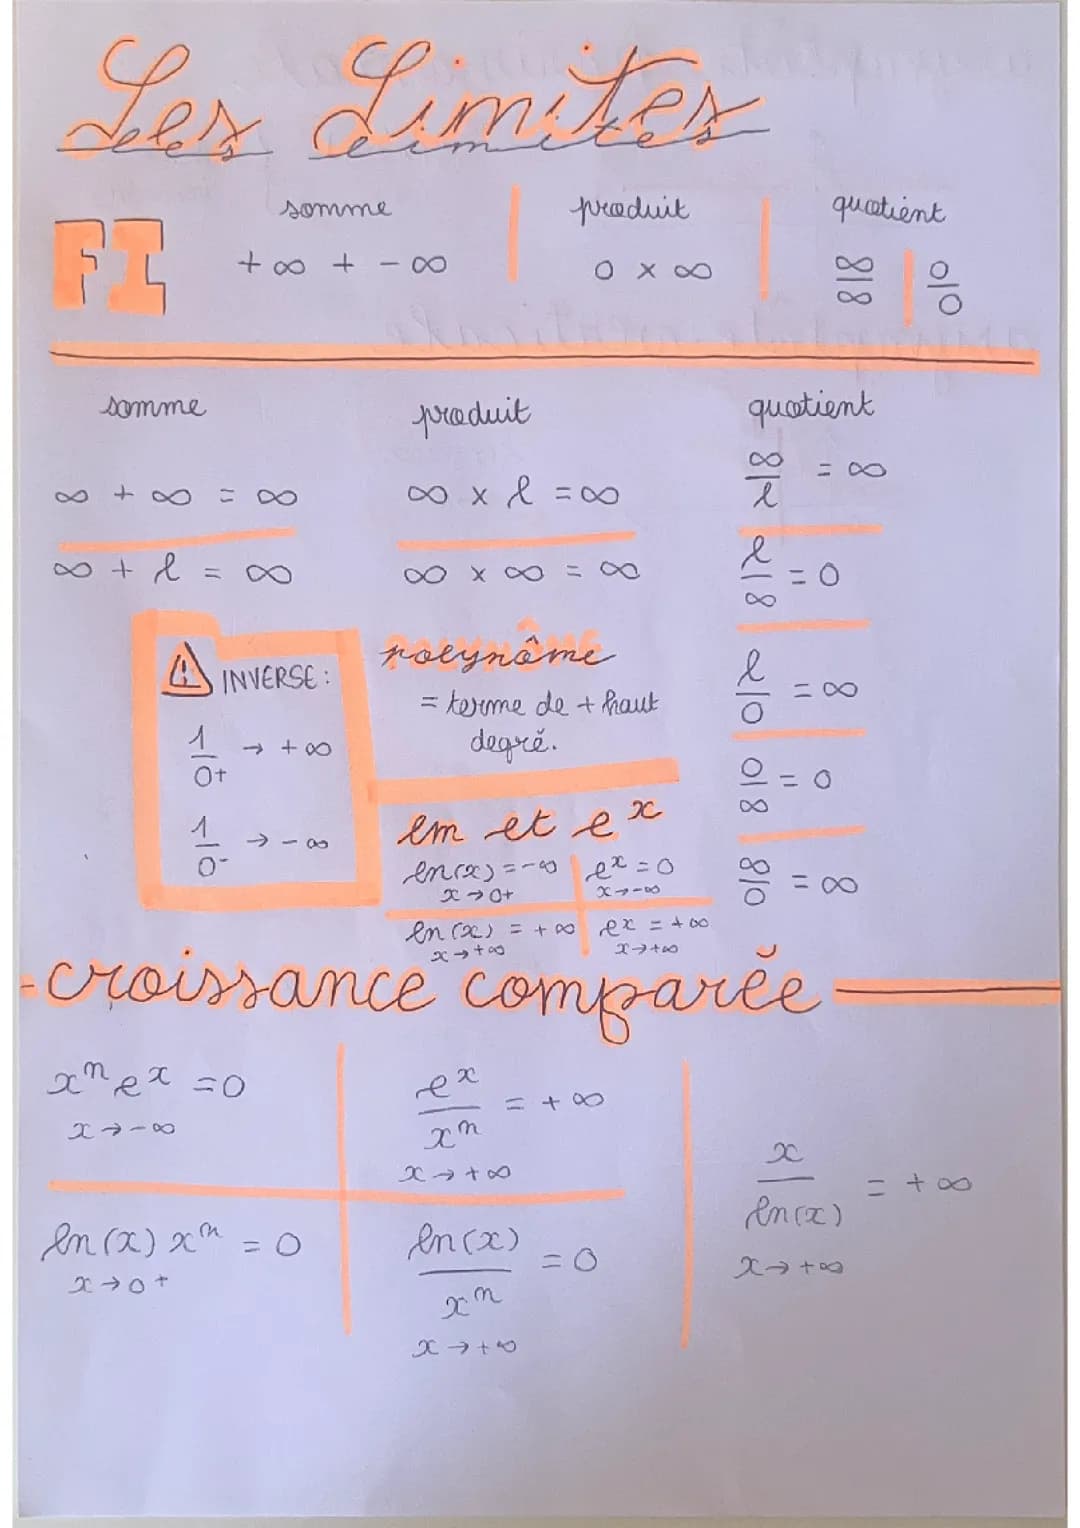 Les Limites
FI
somme
+∞ + -∞
produit
0 × ∞
quotient
∞/∞ | 0/0
somme
∞ + ∞ = ∞
∞ + l = ∞
produit
∞ × l = ∞
∞ × ∞ = ∞
quotient
∞/l = ∞
l/∞ = 0
l/0 = ∞
0/∞ = 0
∞/0 = ∞
⚠ INVERSE :
1/0+ → +∞
1/0- → -∞
polynôme
= terme de + haut
degré.
ln et e^x
ln(x) = -∞
x → 0+
e^x = 0
x → -∞
ln(x) = +∞
x → +∞
e^x = +∞
x → +∞
croissance comparée
x^n e^x = 0
x → -∞
e^x/x^n = +∞
x → +∞
ln(x) x^n = 0
x → 0+
ln(x)/x^n = 0
x → +∞
x/ln(x) = +∞
x → +∞